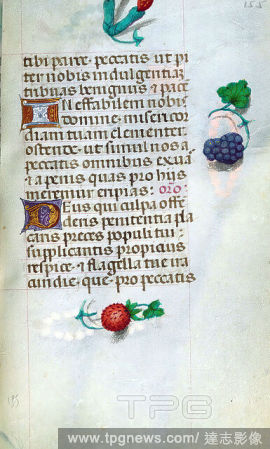 155
tibi parce peccatis ut pi
ter nobis indulgentiaz
tribuas benignus & pace
INeffabilem nobis
domine misericor
diam tuam clementer
ostende ut simul nos a
peccatis omnibus exua
& a penis quas pro hijs
meremur eripias: oro:
Deus qui culpa offe
deris penitentia pla
caris preces populi tui
supplicantis propicius
respice & flagella tue ira
cundie que pro peccatis
TPG
www.tpgnews.com/達志影像